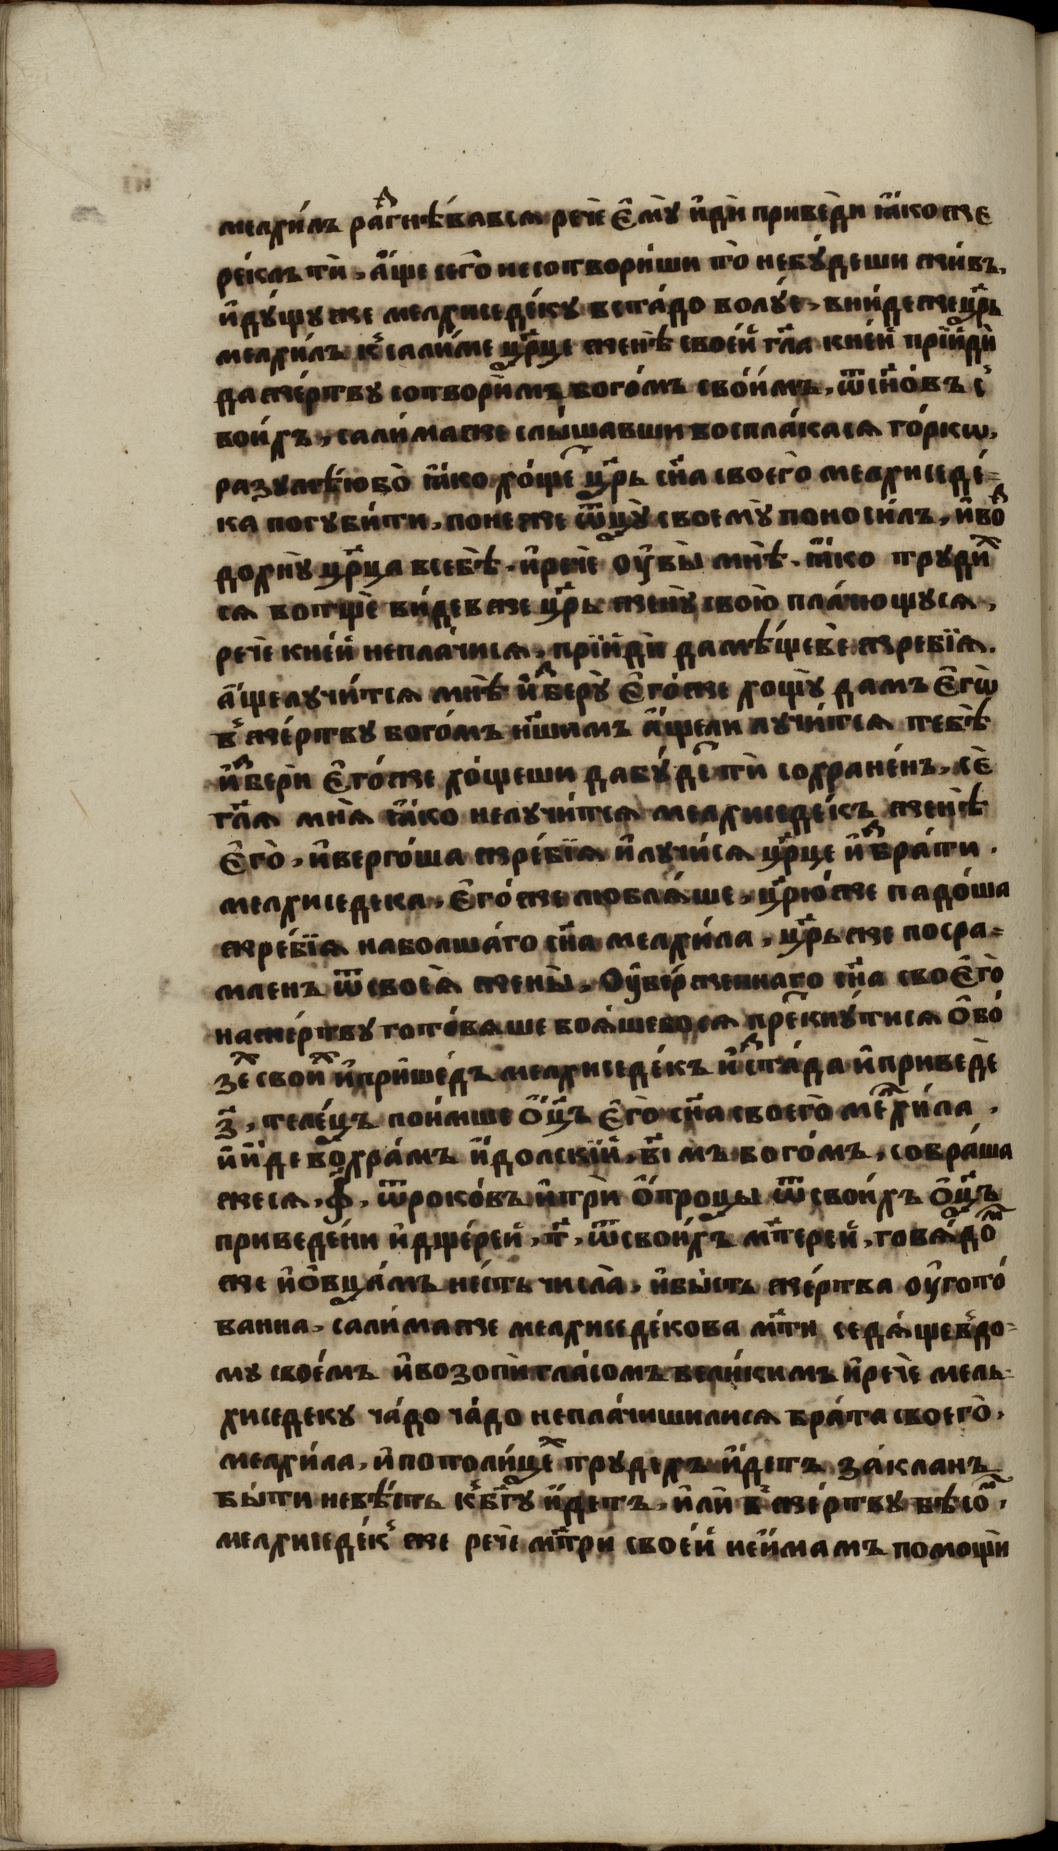 мелхи́лъ ра́ⷥгнѣ́вавсѧ речѐ є҆мꙋ̀ и҆дѝ приве́ди ꙗ҆́коже
реко́лъ тѝ, а҆́ще сегѡ̀ не сотвори́ши то̀ небꙋ́деши жи́въ.
и҆дꙋ́щꙋ же мелхиседе́кꙋ в ста́до волꙋ́е, вни́де же цр҃ь
мелхи́лъ к̾ сали́ме цр҃це женѣ̀ свое́й гл҃а к не́й прїи҆дѝ
да же́ртвꙋ сотвори́мъ, бого́мъ свои́мъ, ѿ сн҃о́въ с̾
вои́хъ, сали́ма же слы́шавши восплáкасѧ го́ркѡ,
разꙋмѣ́ юбо̀ ꙗ҆́ко хо́щеⷮ цр҃ь сн҃а своегѡ̀ мелхиседе́-
ка погꙋби́ти, поне́же ѿцꙋ̀ своемꙋ̀ поноси́лъ, и҆ воⷥ
дохнꙋ̀ цр҃ца в себѣ̀. и҆ речѐ ᲂу҆вы̀ мнѣ̀. ꙗ҆́ко трꙋдиⷯ
сѧ вотщѐ ви́дев же цр҃ь женꙋ̀ свою̀ пла́чющꙋсѧ,
речѐ к не́й непла́чисѧ, прїи҆дѝ да мѣ́щевѐ жребїѧ.
а҆́ще лꙋчи́тсѧ мнѣ̀ и҆ⷥберꙋ̀ є҆го́же хощꙋ̀ дамъ є҆гѡ̀
в̾ же́ртвꙋ бого́мъ нш҃имъ а҆́ще ли лꙋчи́тсѧ тебѣ̀
и҆ⷥберѝ є҆го́же хо́щеши да бꙋ́деⷮ тѝ сохране́нъ, сѐ
гл҃ѧ мнѧ̀ ꙗ҆́ко нелꙋчи́тсѧ мелхиседе́къ женѣ̀
є҆го̀, и҆ верго́ша жре́бїѧ и҆ лꙋчи́сѧ цр҃це и҆ⷥбра́ти.
мелхиседека, є҆го́же люблѧ́ше, цр҃ю́же падо́ша
жре́бїѧ на болша́го сн҃а мелхи́ла, цр҃ь же посра-
мленъ ѿ своеѧ̀ жены̀, ᲂу҆ве́рженнаго сн҃а своегѡ̀
на же́ртвꙋ гото́вѧше боѧ́шебосѧ преⷦ҇нꙋ́тисѧ ѻ҆во́
зеⷯ своиⷯ и҆ прише́дъ мелхиседе́къ и҆ⷥста́да и҆ приведѐ
з҃, теле́цъ поимше ѻ҆ц҃ъ є҆гѡ̀ сн҃а своегѡ̀ меⷧхи́ла,
и҆ и҆́де во хра́мъ и҆́долскїй, в҃і мъ бого́мъ, собра́ша
жесѧ, ф҃, ѿроко́въ и҆ трѝ ѻ҆́троцы ѿ свои́хъ ѻ҆ц҃ъ
приведе́ни и҆ дще́рей, т҃, ѿ свои́хъ мт҃ерей, говѧ́доⷨ
же и҆ ѻ҆вца́мъ не́сть числа̀, и҆ бы́сть же́ртва ᲂу҆гото́
ванна, сали́ма же мелхиседе́кова мт҃и седѧ́ше в̾ до-
мꙋ свое́мъ и҆ возопѝ гла́сомъ вели́кимъ и҆ речѐ мель-
хиседекꙋ ча́до ча́до непла́чишилисѧ бра́та своегѡ̀,
мелхи́ла, и҆ потоли́цеⷯ трꙋдехъ и҆́детъ за́кланъ
бы́ти невѣ́сть к̾ бг҃ꙋ и҆́детъ, и҆лѝ в̾ же́ртвꙋ бѣсоⷨ,
мелхиседе́к̾ же речѐ мт҃ри свое́й не и҆́мамъ помощѝ